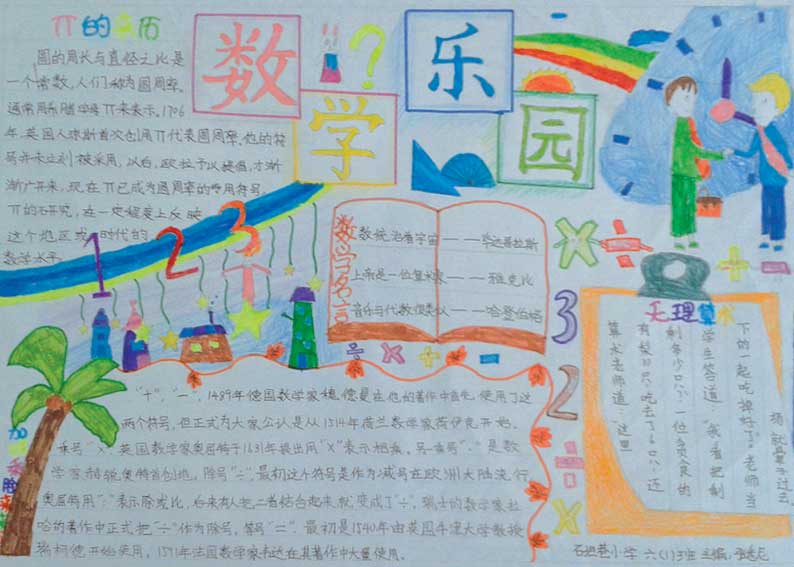 π的来历
圆的周长与直径之比是
一个常数,人们称为圆周率。
通常用希腊字母π来表示。1706
年,英国人琼斯首次创用π代表圆周率。他的符
号并未立刻被采用,以后,欧拉予以提倡,才渐
渐广开来,现在π已成为圆周率的专用符号,
π的研究,在一定程度上反映
这个地区或时代的
数学水平
数学乐园
1 2 3
数学名言
数统治着宇宙——毕达哥拉斯
上帝是一位算术家——雅克比
音乐与代数很类似——哈登伯格
× ÷
+ −
3
2
÷
×
÷ × + −
无理算术
算术老师道:“这里
有梨10只,吃去了6只,还
剩多少只?”一位负气的
学生答道:“我看把剩
下的一起吃掉好了。”老师当
场就晕了过去。
加减乘除的来历
“+”,“−”,1489年德国数学家魏德曼在他的著作中首先使用了这
两个符号,但正式为大家公认是从1514年荷兰数学家荷伊克开始。
乘号“×”,英国数学家奥屈特于1631年提出用“×”表示相乘。另一乘号“·”是数
学家赫锐奥特首创的。除号“÷”,最初这个符号是作为减号在欧洲大陆流行,
奥屈特用“:”表示除或比,后来有人把二者结合起来就变成了“÷”,瑞士的数学家拉
哈的著作中正式把“÷”作为除号,等号“=”,最初是1540年由英国牛津大学教授
瑞柯德开始使用,1591年法国数学家韦达在其著作中大量使用。
小学 六(1)班 主编: